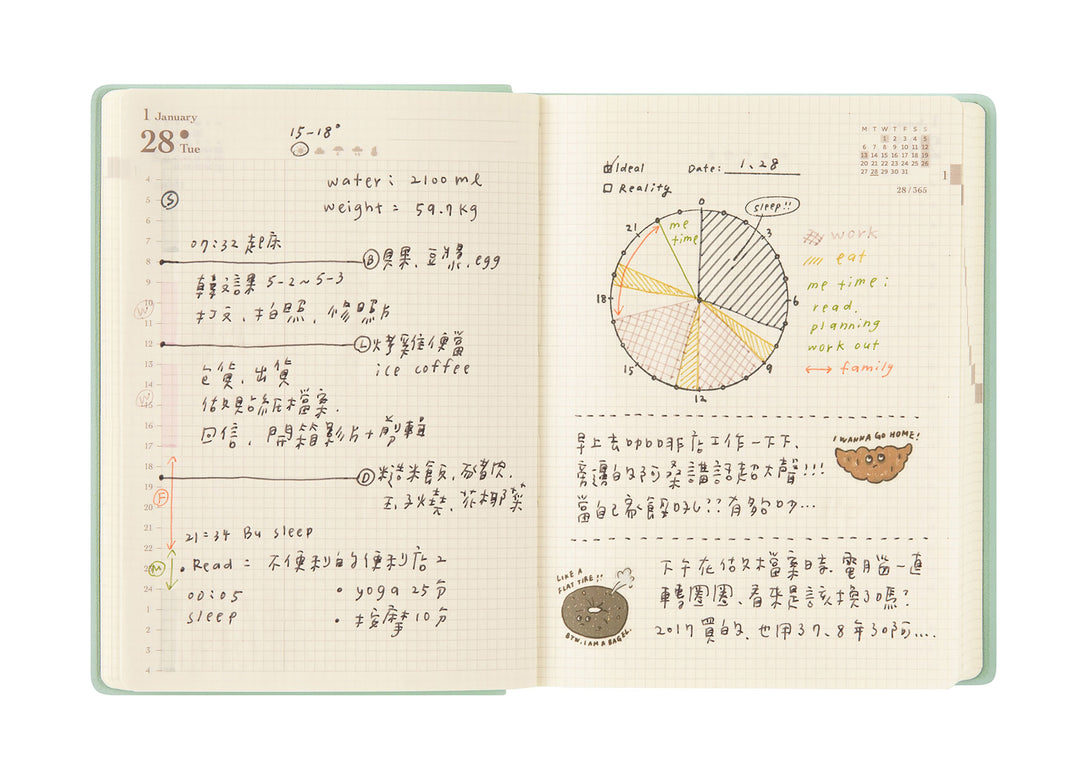 1 January
28 Tue
15-18°
water: 2100 ml
weight = 59.7 kg
4
5
6
7
8
9
10
11
12
13
14
15
16
17
18
19
20
21
22
23
24
1
2
3
4
S
W
W
F
M
07:32 起床
B 貝果、豆漿、egg
韓文課 5-2~5-3
打文、拍照、修照片
L 烤雞便當
ice coffee
包貨、出貨
做貼紙檔案.
回信、開箱影片+剪輯
D 糙米飯、豬肉、
玉子燒、花椰菜
21:34 Bu sleep
• Read = 不便利的便利店 2
00:05
sleep
• yoga 25分
• 按摩 10分
Ideal
Reality
Date: 1.28
M T W T F S S
1 2 3 4 5
6 7 8 9 10 11 12
13 14 15 16 17 18 19
20 21 22 23 24 25 26
27 28 29 30 31
28/365
1
0
3
6
9
12
15
18
21
sleep!!
me
time
work
eat
me time:
read.
planning
work out
family
早上去咖啡店工作一下下、
旁邊的阿桑講話超大聲!!!
當自己家餒??有夠吵...
I WANNA GO HOME!
LIKE A
FLAT TIRE!!
BTW. I AM A BAGEL.
下午在做檔案時、電腦一直
轉圈圈、看來是該換了嗎?
2017買的、也用了7、8年了阿....